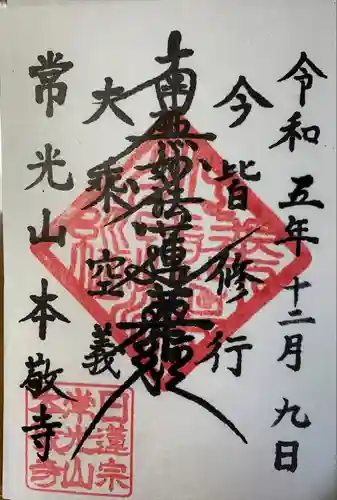 令和五年十二月九日
今皆修行
南無妙法蓮華經
大乘空義
常光山本敬寺
日蓮宗
常光山
本敬寺